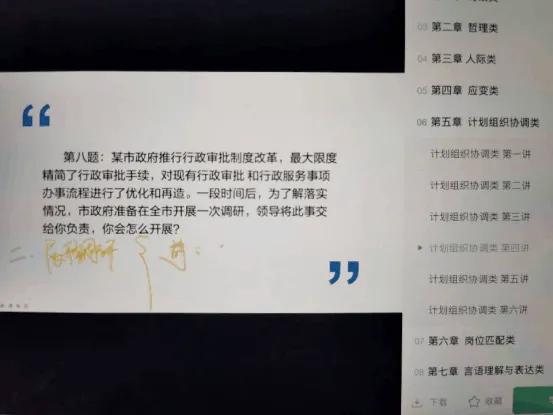 03 第二章 哲理类
04 第三章 人际类
05 第四章 应变类
06 第五章 计划组织协调类
计划组织协调类 第一讲
计划组织协调类 第二讲
计划组织协调类 第三讲
计划组织协调类 第四讲
计划组织协调类 第五讲
计划组织协调类 第六讲
07 第六章 岗位匹配类
08 第七章 言语理解与表达类
下载 收藏
“
第八题：某市政府推行行政审批制度改革，最大限度
精简了行政审批手续，对现有行政审批和行政服务事项
办事流程进行了优化和再造。一段时间后，为了解落实
情况，市政府准备在全市开展一次调研，领导将此事交
给你负责，你会怎么开展？
”
二、